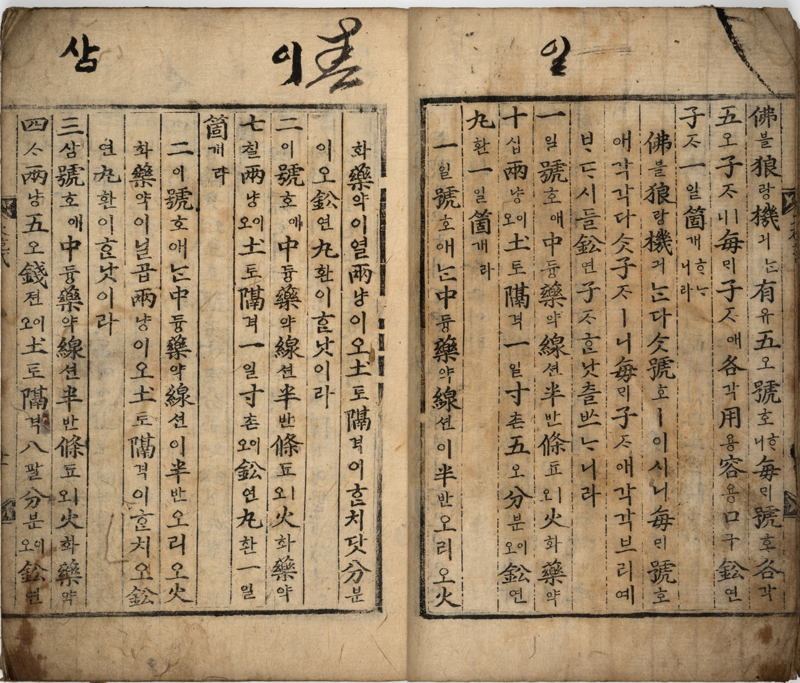 일
佛블狼랑機긔ᄂᆞᆫ有유五오號호ᄒᆞ니每ᄆᆡ號호各각
五오子ᄌᆞㅣ니每ᄆᆡ子ᄌᆞ애各각用용容용口구鈆연
子ᄌᆞ一일箇개ᄒᆞᄂᆞ니라
佛블狼랑機긔ᄂᆞᆫ다ᄉᆞᆺ號호ㅣ이시니每ᄆᆡ號호
애각각다ᄉᆞᆺ子ᄌᆞㅣ니每ᄆᆡ子ᄌᆞ애각각브리예
ᄇᆞᄃᆞ시들鈆연子ᄌᆞᄒᆞᆫ낫츨ᄡᅳᄂᆞ니라
一일號호애中듕藥약線션半반條됴외火화藥약
十십兩냥오이土토隔격一일寸촌五오分분오이鈆연
丸환一일箇개라
一일號호애ᄂᆞᆫ中듕藥약線션이半반오리오火
이
삼
화藥약이열兩냥이오土토隔격이ᄒᆞᆫ치닷分분
이오鈆연丸환이ᄒᆞᆫ낫이라
二이號호애中듕藥약線션半반條됴외火화藥약
七칠兩냥오이土토隔격一일寸촌오이鈆연丸환一일
箇개라
二이號호애ᄂᆞᆫ中듕藥약線션이半반오리오火
화藥약이닐곱兩냥이오土토隔격이ᄒᆞᆫ치오鈆
연丸환이ᄒᆞᆫ낫이라
三삼號호애中듕藥약線션半반條됴외火화藥약
四ᄉᆞ兩냥五오錢젼오이土토隔격八팔分분오이鈆연